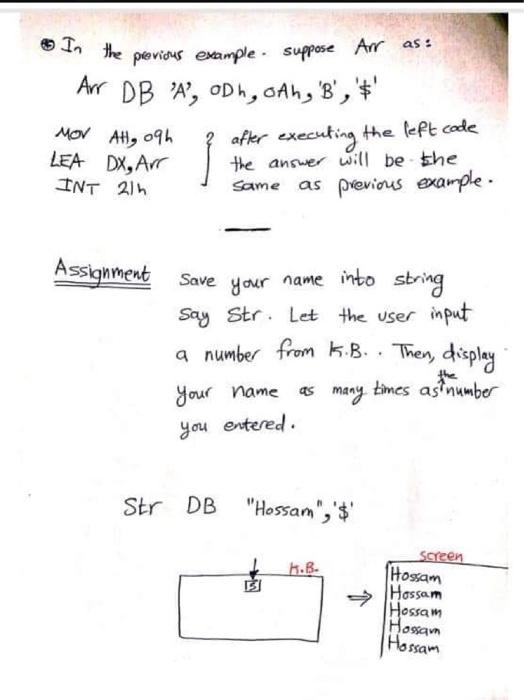 ⊛ In the previous example. suppose Arr as:
Arr DB 'A', 0Dh, 0Ah, 'B', '$'
MOV AH, 09h
LEA DX, Arr
INT 21h
after executing the left code
the answer will be the
same as previous example.
Assignment
Save your name into string
Say Str. Let the user input
a number from K.B.. Then, display
your name as many times as the number
you entered.
Str DB "Hossam", '$'
K.B.
5
⇒
Screen
Hossam
Hossam
Hossam
Hossam
Hossam